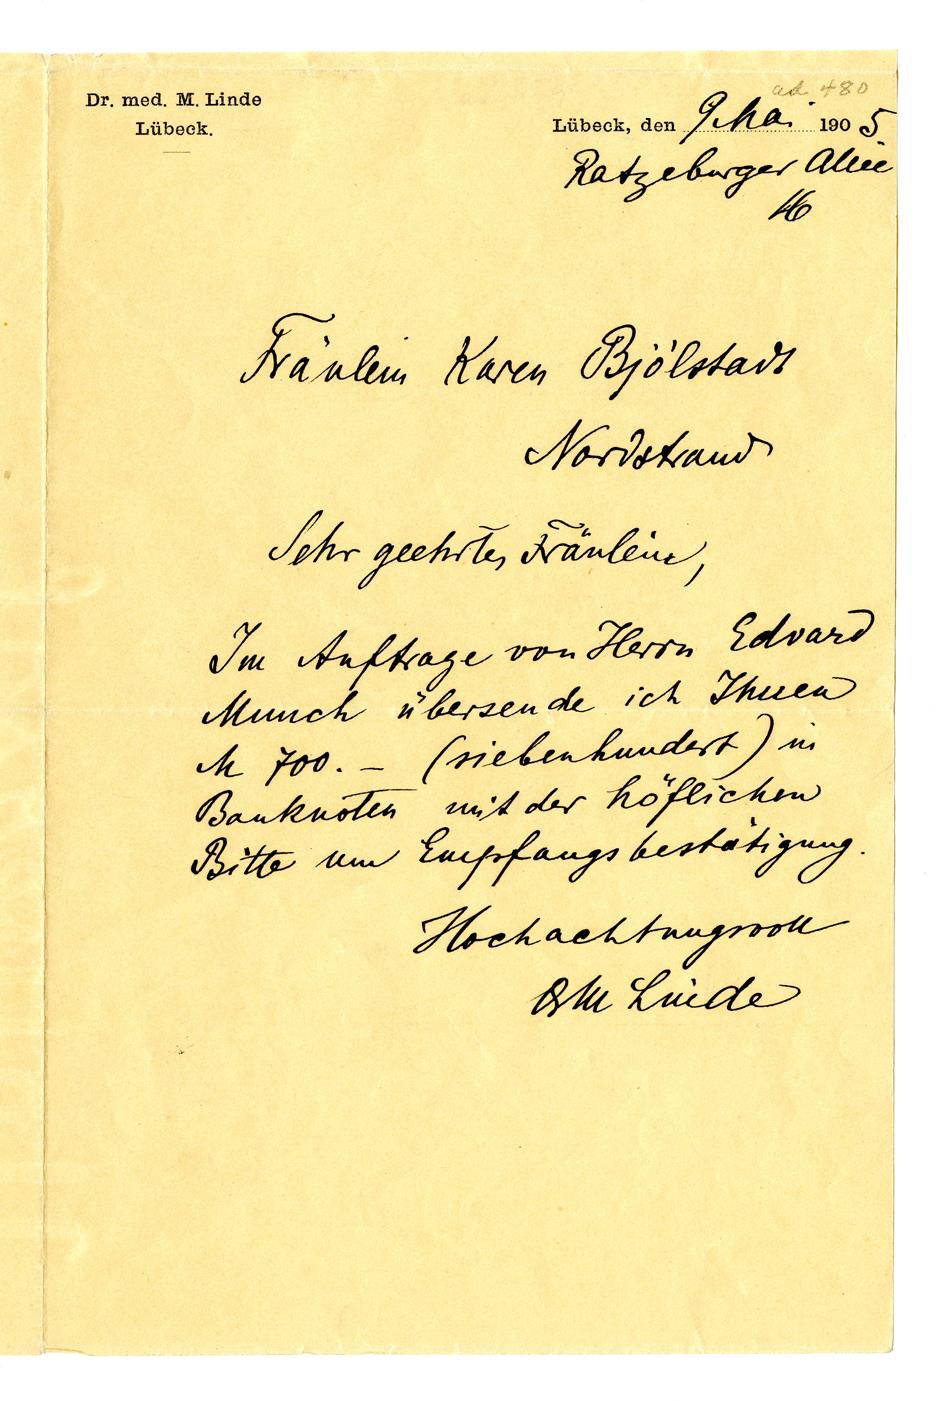 Dr. med. M. Linde
Lübeck.
ad. 480
Lübeck, den 9. Mai. 1905
Ratzeburger Allee
16
Fräulein Karen Bjölstadt
Nordstrand
Sehr geehrtes Fräulein,
Im Auftrage von Herrn Edvard
Munch übersende ich Ihnen
M 700. – (siebenhundert) in
Banknoten mit der höflichen
Bitte um Empfangsbestätigung.
Hochachtungsvoll
Dr M Linde